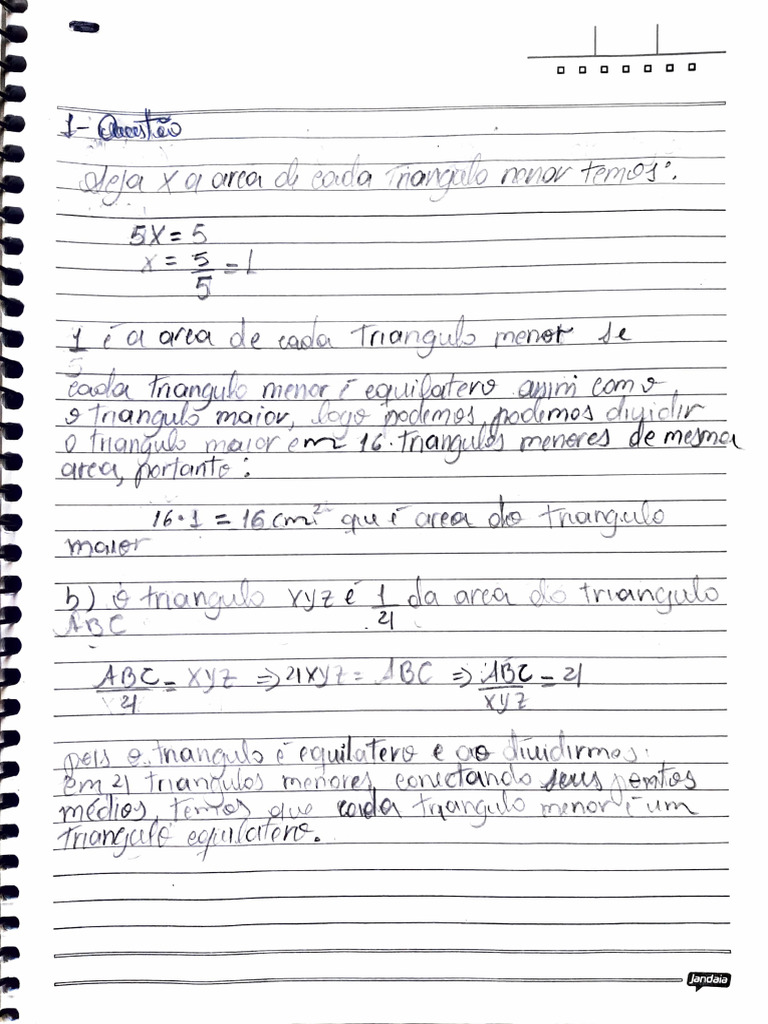 1- Questão
Seja x a area de cada triangulo menor temos:
5x = 5
x = 5/5 = 1
1 é a area de cada triangulo menor se
5
cada triangulo menor é equilatero assim com o
o triangulo maior, logo podemos podemos dividir
o triangulo maior em 16 triangulos menores de mesma
area, portanto:
16 · 1 = 16 cm² que é area do triangulo
maior
b) o triangulo XYZ é 1/21 da area do triangulo
ABC
ABC/21 = XYZ ⇒ 21XYZ = ABC ⇒ ABC/XYZ = 21
pois o triangulo é equilatero e ao dividirmos
em 21 triangulos menores conectando seus pontos
médios, temos que cada triangulo menor é um
triangulo equilatero.
jandaia